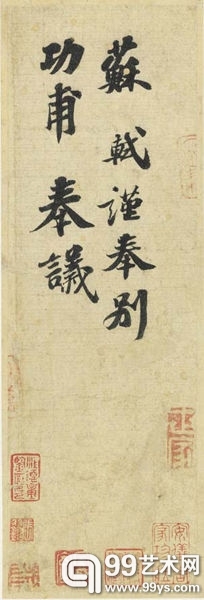 蘇軾謹奉別
功甫奉議
99艺术网
www.99ys.com